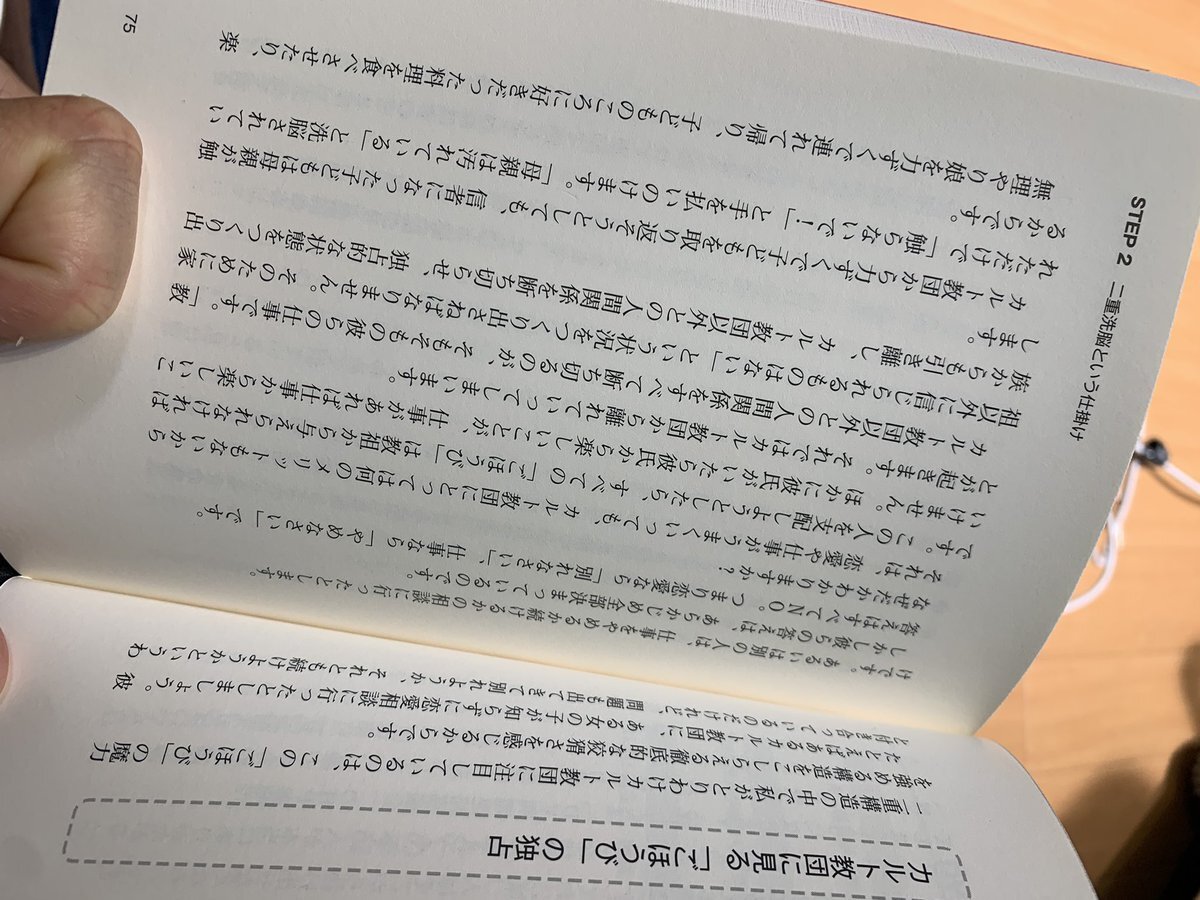 カルト教団に見る「ごほうび」の独占
二重構造の中で私がとりわけカルト教団に注目しているのは、この「ごほうび」の魔力
を強める構造をこしらえる徹底的な狡猾さを感じるからです。
たとえばあるカルト教団に、ある女の子が知らずに恋愛相談に行ったとしましょう。彼
と付き合っているのだけれど、問題も出てきて別れようか、それとも続けようかというわ
けです。あるいは別の人は、仕事をやめるか続けるかの相談に行ったとします。
しかし彼らの答えは、あらかじめ全部決まっているのです。
答えはすべてNO。つまり恋愛なら「別れなさい」、仕事なら「やめなさい」です。
なぜだかわかりますか?
それは、恋愛や仕事がうまくいっても、カルト教団にとっては何のメリットもないから
です。この人を支配しようとしたら、すべての「ごほうび」は教祖から与えられなければ
いけません。ほかに彼氏がいたら彼氏から楽しいことが、仕事があれば仕事から楽しいこ
とが起きます。それではカルト教団から離れていってしまいます。
カルト教団以外との人間関係をすべて断ち切るのが、そもそもの彼らの仕事です。「教
祖以外に信じられるものはない」という状況をつくり出さねばなりません。そのために家
族からも引き離し、カルト教団以外との人間関係を断ち切らせ、独占的な状態をつくり出
します。
カルト教団から力ずくで子どもを取り返そうとしても、信者になった子どもは母親が触
れただけで「触らないで!」と手を払いのけます。「母親は汚れている」と洗脳されてい
るからです。
無理やり娘を力ずくで連れて帰り、子どものころに好きだった料理を食べさせたり、楽
STEP 2 二重洗脳という仕掛け
75